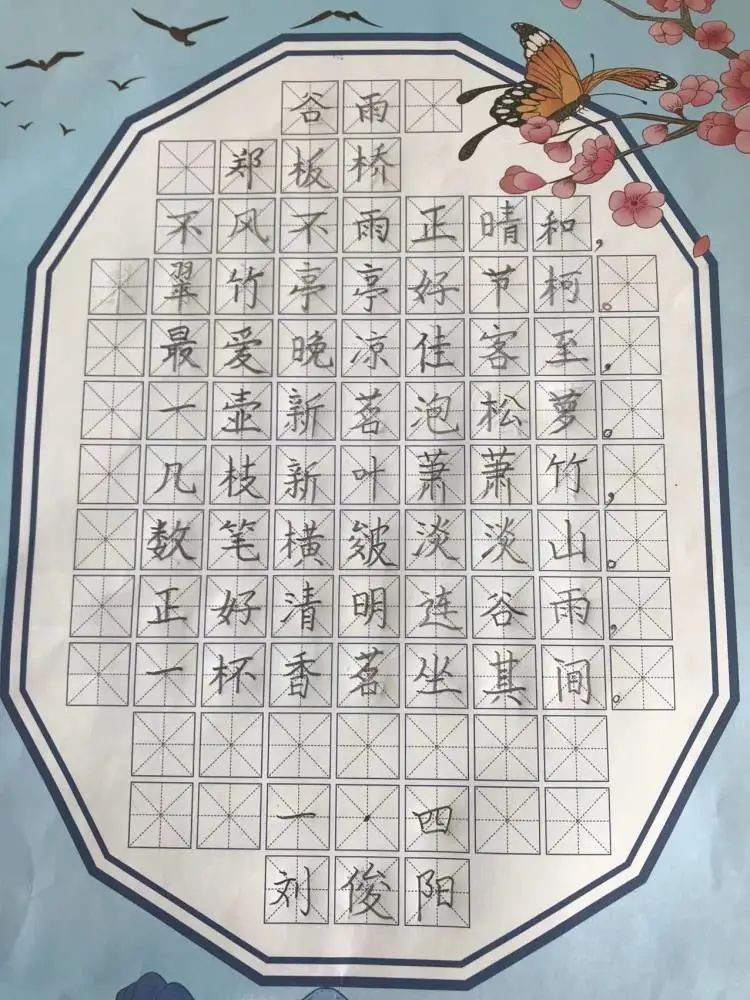 谷雨
郑板桥
不风不雨正晴和，
翠竹亭亭好节柯。
最爱晚凉佳客至，
一壶新茗泡松萝。
几枝新叶萧萧竹，
数笔横皴淡淡山。
正好清明连谷雨，
一杯香茗坐其间。
一·四
刘俊阳